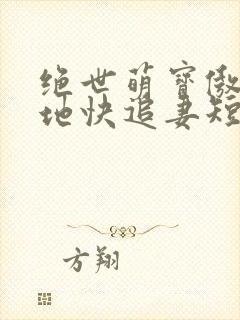 绝世萌宝傲
地快追妻短
方翔